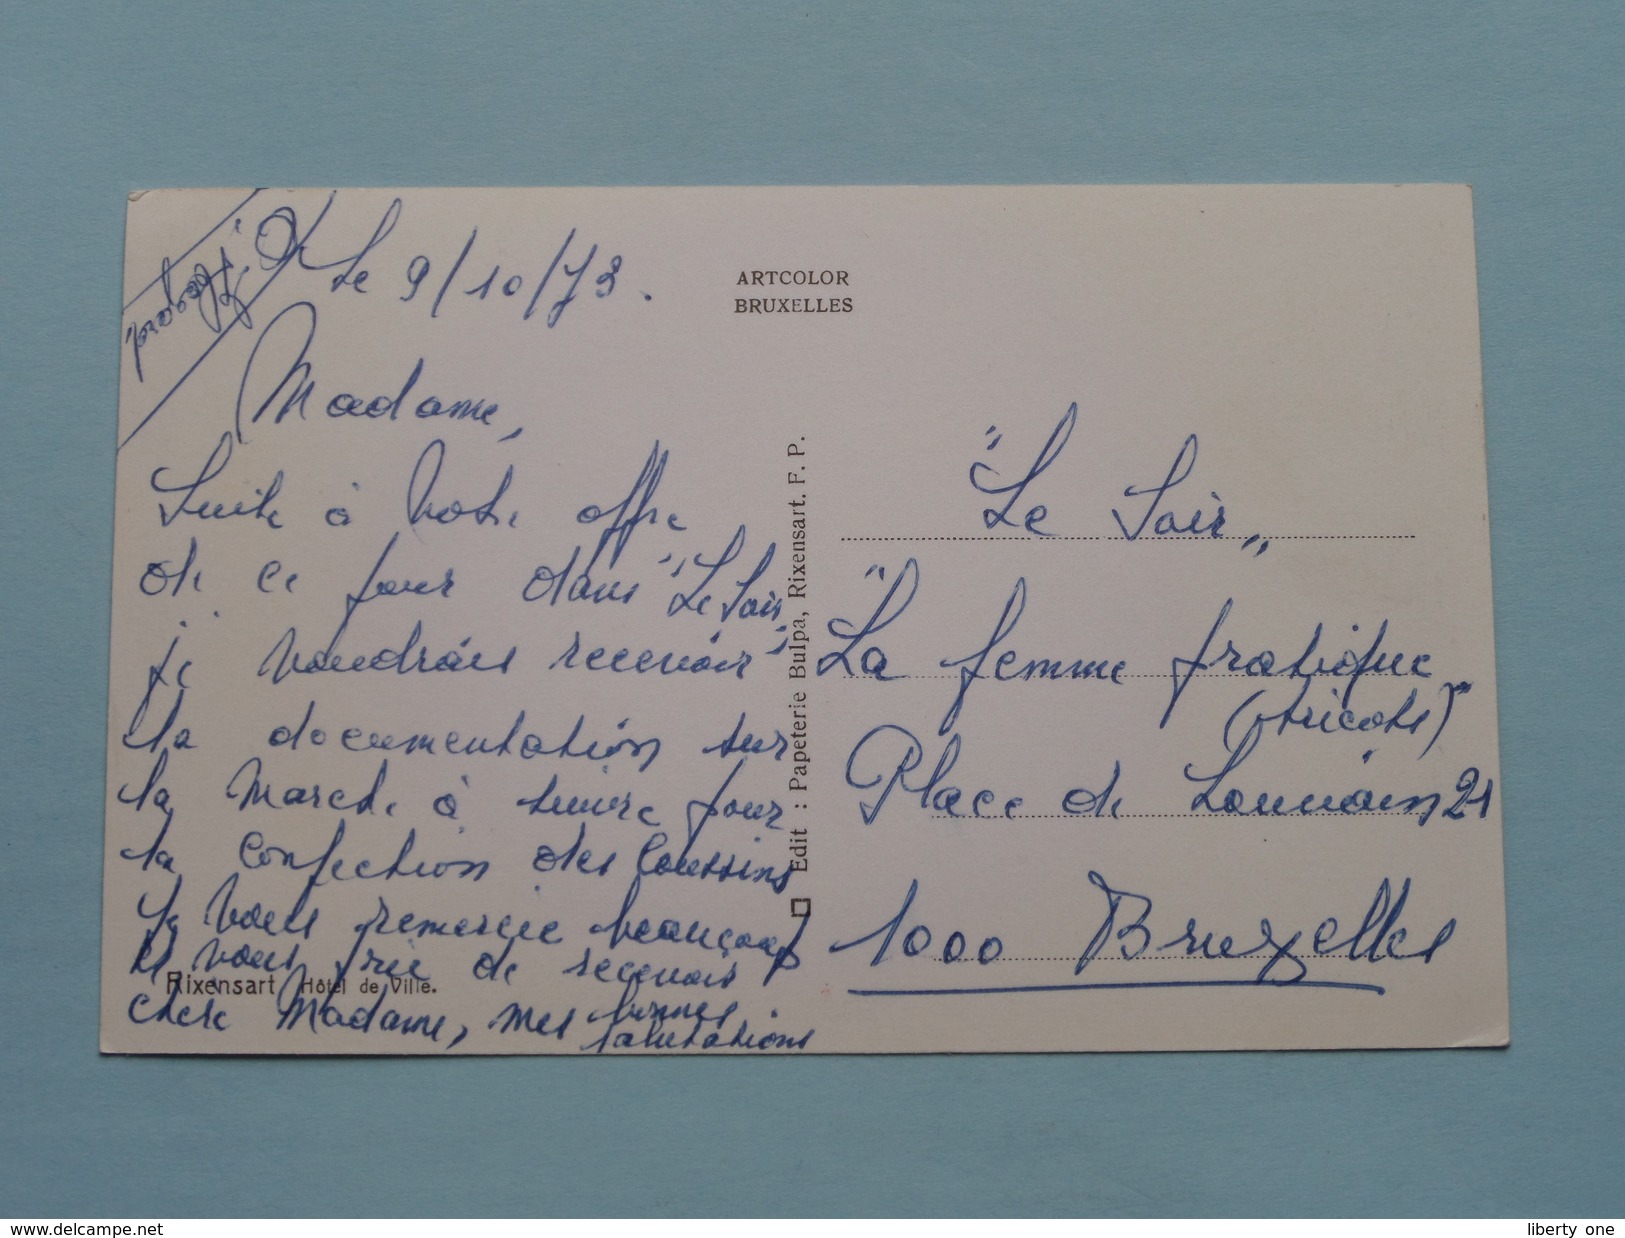 Le 9/10/73.
Madame,
Suite à votre offre
de ce jour dans "Le Soir"
je voudrais recevoir
la documentation sur
la marche à suivre pour
la confection des coussins
Je vous remercie beaucoup
et vous prie de recevoir
chère Madame, mes bonnes
salutations
Rixensart Hôtel de Ville.
ARTCOLOR
BRUXELLES
Edit : Papeterie Bulpa, Rixensart. F. P.
"Le Soir"
"La femme pratique
(tricots)"
Place de Louvain 21
1000 Bruxelles
www.delcampe.net
liberty one